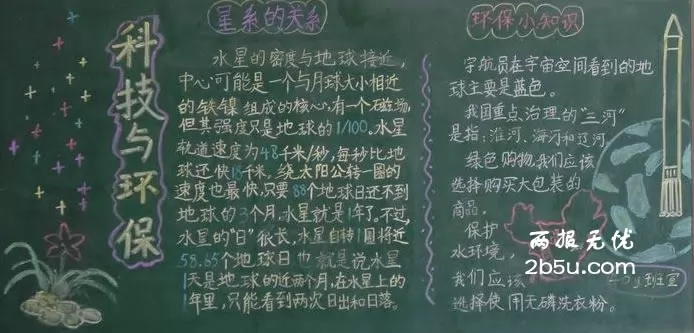 科技与环保
星系的关系
水星的密度与地球接近,
中心可能是一个与月球大小相近
的铁镍组成的核心。有一个磁场,
但其强度只是地球的1/100。水星
轨道速度为48千米/秒,每秒比地
球还快18千米,绕太阳公转一圈的
速度也最快,只要88个地球日还不到
地球的3个月,水星就是1年了。不过,
水星的“日”很长,水星自转1圆将近
58.65个地球日也就是说水星
1天是地球的近两个月,在水星上的
1年里,只能看到两次日出和日落。
环保小知识
宇航员在宇宙空间看到的地
球主要是蓝色。
我国重点治理的“三河”
是指:淮河、海河和辽河
绿色购物,我们应该
选择购买大包装的
商品。
保护
水环境,
我们应该
选择使用无磷洗衣粉。
两报无忧
2b5u.com